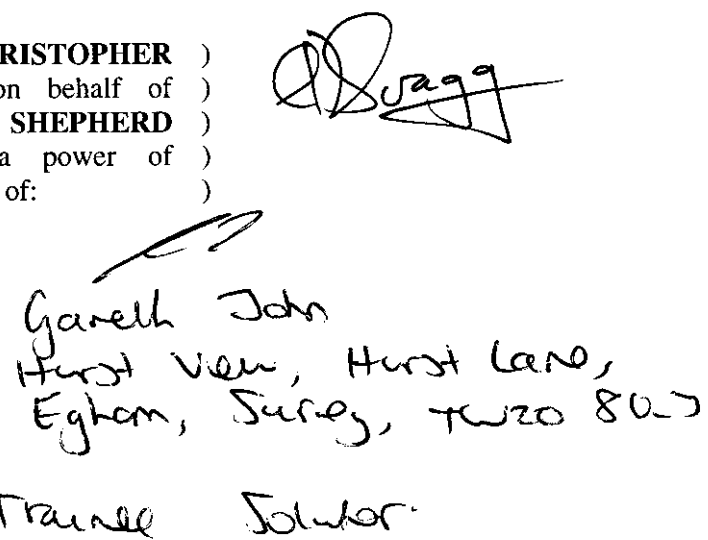 RISTOPHER )
on behalf of )
SHEPHERD )
a power of )
of: )
Gareth John
Hurst View, Hurst Lane,
Egham, Surrey, TW20
Trainee Solicitor.